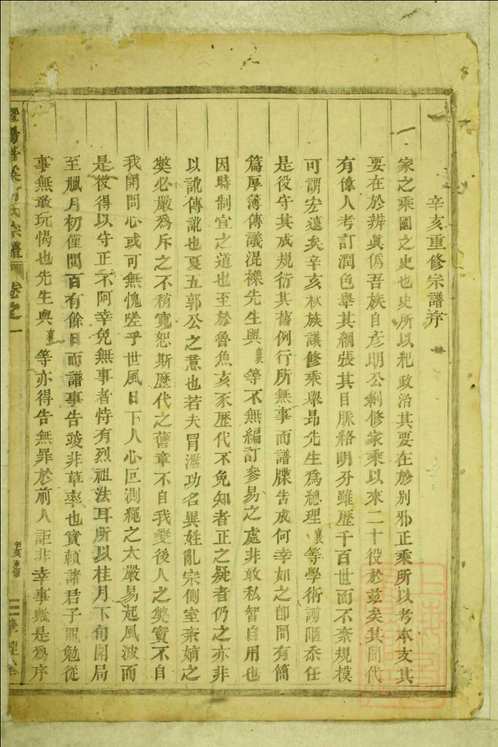 辛亥重修宗譜序
一家之乘國之史也史所以紀政治其要在於別邪正乘所以考本支其
要在於辨眞僞吾族自彥明公剏修家乘以來二十役於茲矣其間代
有偉人考訂潤色舉其綱張其目脉絡明分雖歷千百世而不紊規模
可謂宏遠矣辛亥秋族議修乘舉昂先生爲總理襄等學術謭陋忝任
是役守其成規衍其舊例行所無事而譜牒告成何幸如之卽間有簡
篇厚薄傳議混襍先生與襄等不無編訂參易之處非敢私智自用也
因時制宜之道也至於魯魚亥豕歷代不免知者正之疑者仍之亦非
以訛傳訛也夏五郭公之意也若夫冒濫功名異姓亂宗側室紊嫡之
獘必嚴爲斥之不稍寬恕斯歷代之舊章不自我變後人之獘竇不自
我開問心或可無愧嗟乎世風日下人心叵測繩之太嚴易起風波而
是役得以守正不阿幸免無事者恃有烈祖法耳所以桂月下旬開局
至臘月初僅閱百有餘日而譜事告竣非草率也實賴諸君子黽勉從
事無敢玩愒也先生與襄等亦得告無罪於前人詎非幸事歟是爲序
宗譜 卷之一